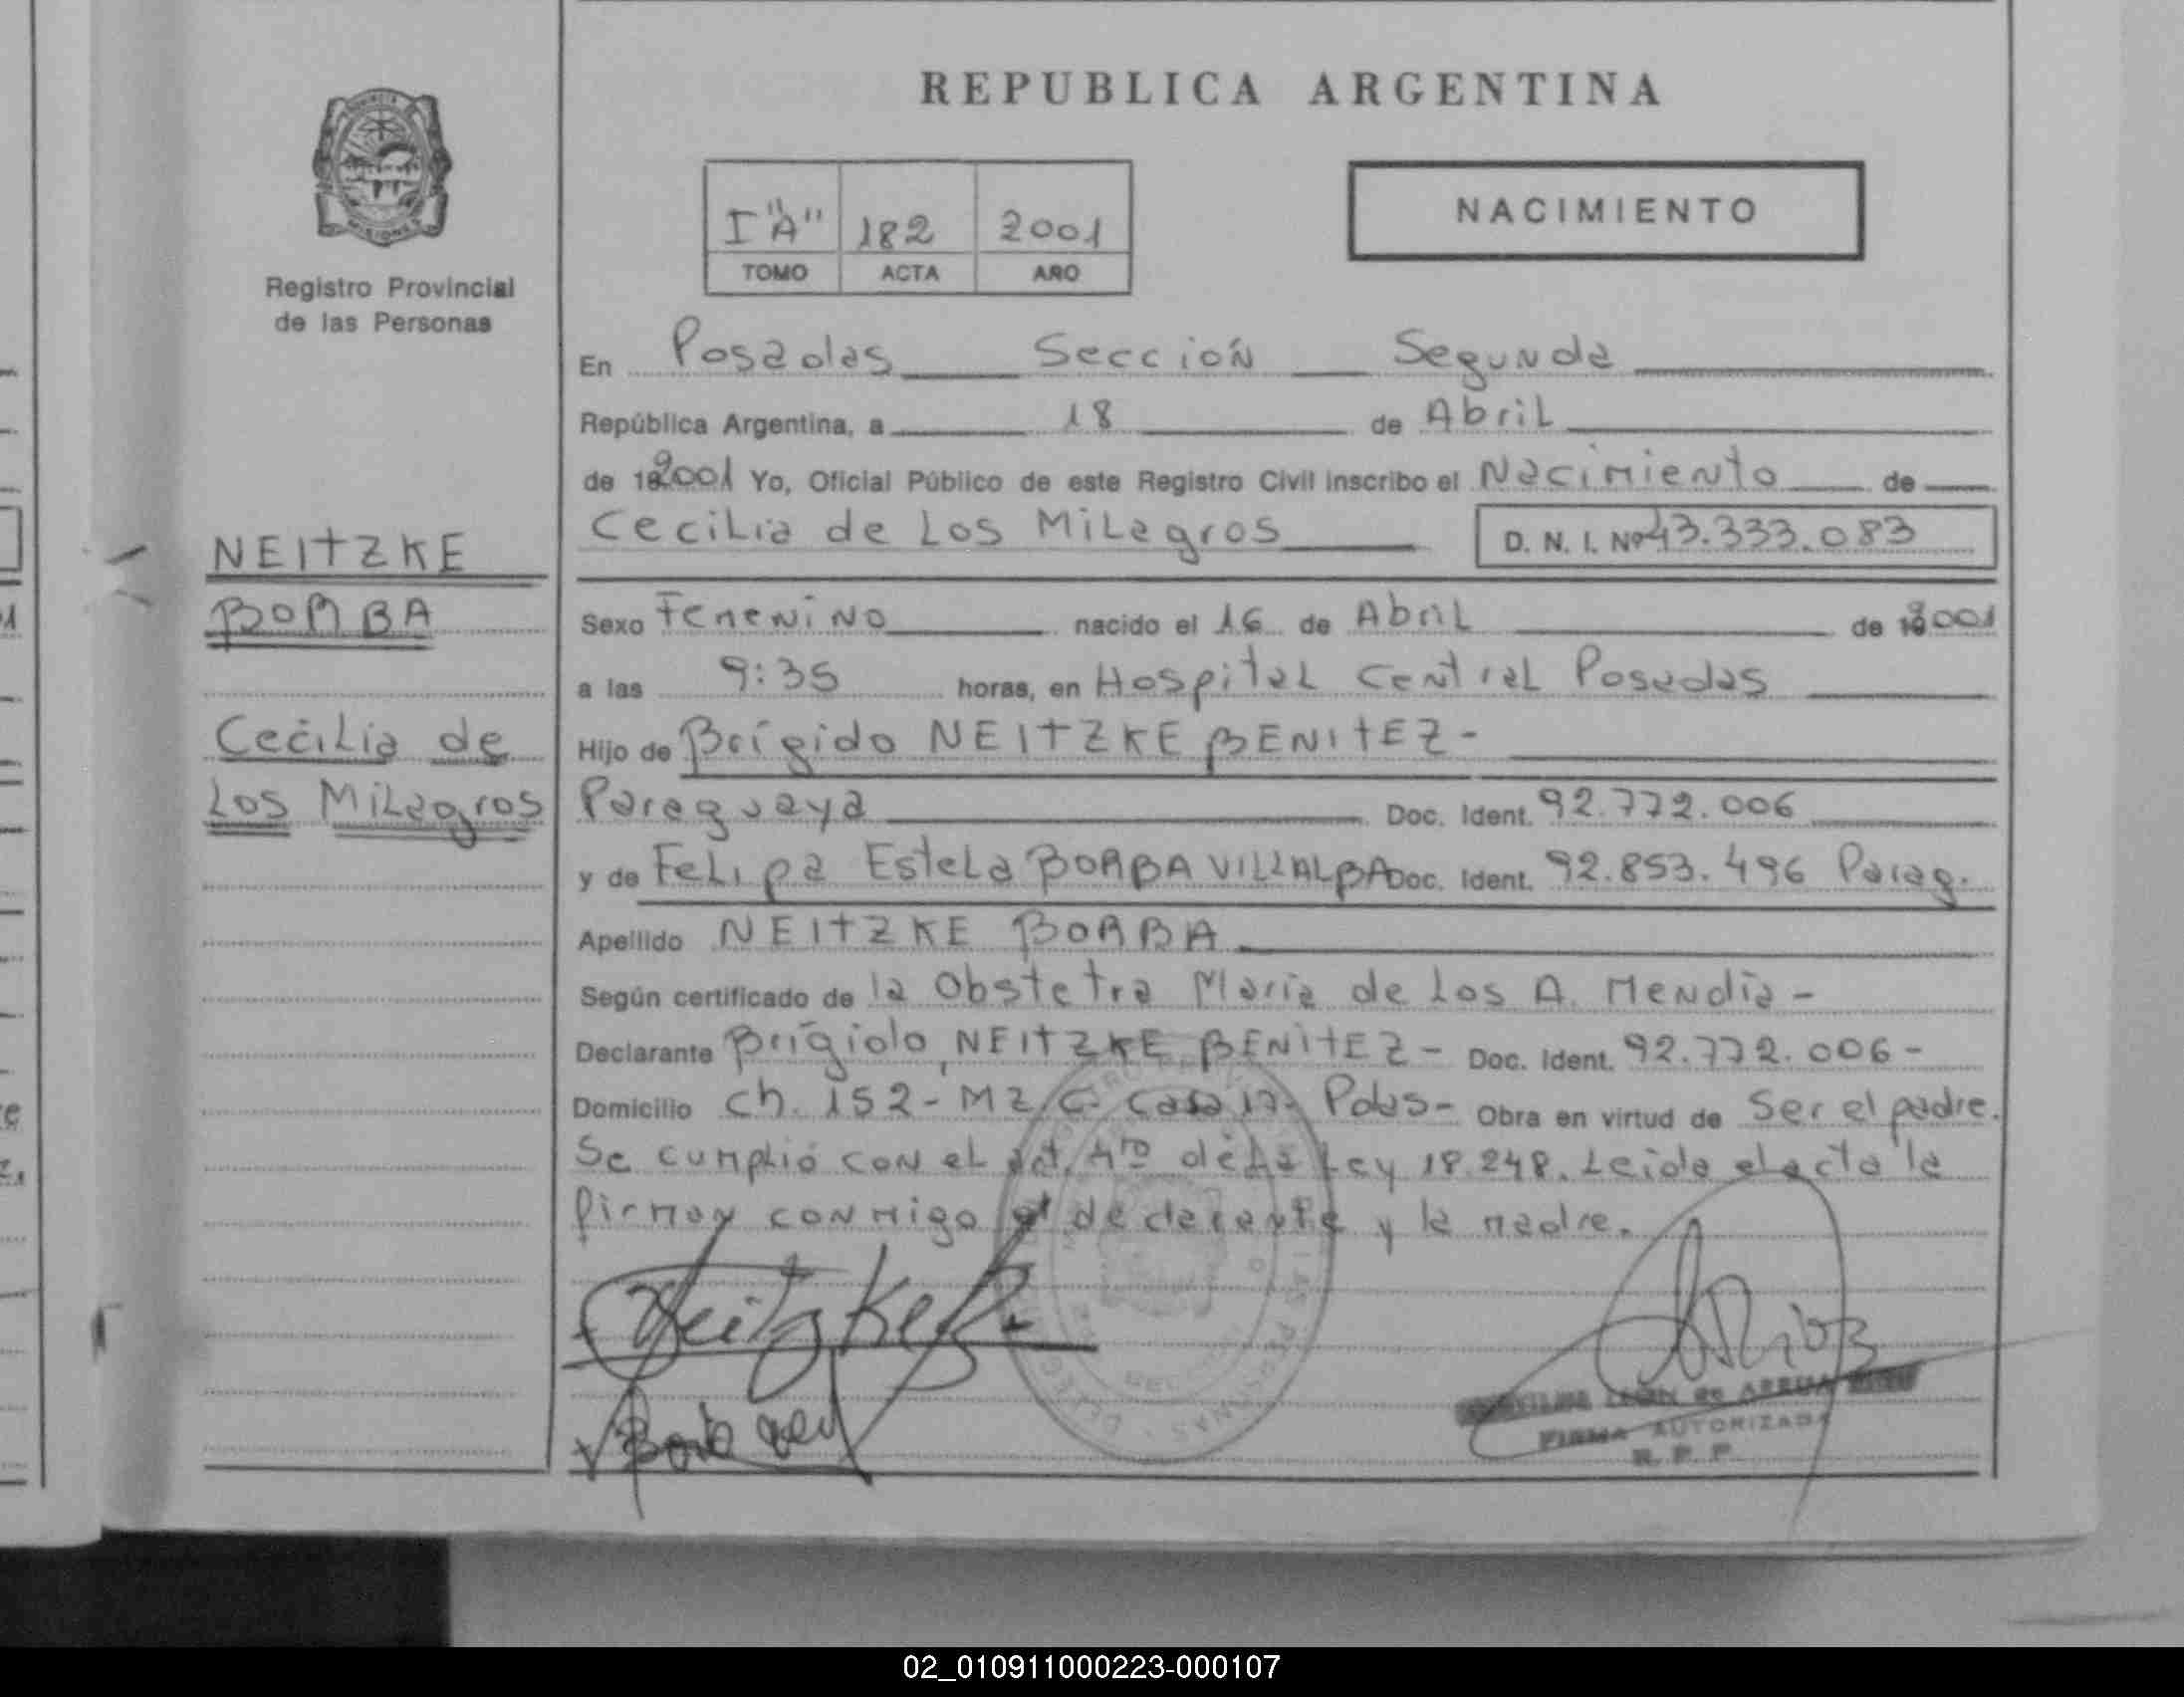 REPUBLICA ARGENTINA
NACIMIENTO
I "A" 182 2001
TOMO ACTA AÑO
Registro Provincial
de las Personas
En Posadas Sección Segunda
República Argentina, a 18 de Abril
de 2001 Yo, Oficial Público de este Registro Civil inscribo el Nacimiento de
Cecilia de Los Milagros D. N. I. Nº 43.333.083
NEITZKE
BORBA
Cecilia de
Los Milagros
Sexo Femenino nacido el 16 de Abril de 2001
a las 9:35 horas, en Hospital Central Posadas
Hijo de Brígido NEITZKE BENITEZ -
Paraguaya Doc. Ident. 92.772.006
y de Felipa Estela BORBA VILLALBA Doc. Ident. 92.853.496 Parag.
Apellido NEITZKE BORBA
Según certificado de la Obstetra María de Los A. Mendia -
Declarante Brígido NEITZKE BENITEZ - Doc. Ident. 92.772.006 -
Domicilio Ch. 152 - MZ C - Casa 17 - Pdas - Obra en virtud de Ser el padre.
Se cumplió con el art. 4to de la Ley 18.248. Leida el acta la
firman conmigo el declarante y la madre.
FIRMA AUTORIZADA
R. P. P.
02_010911000223-000107